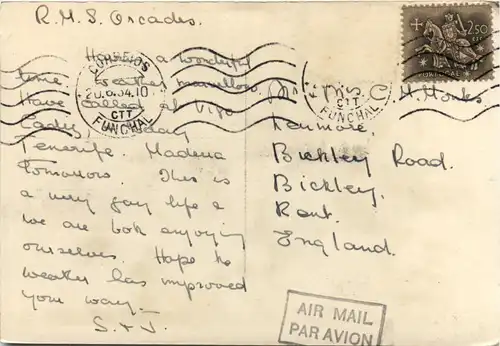 R.M.S. Orcades.
Having a wonderful
time. Weather marvellous
Have called at Vigo
Cadiz, today
Tenerife. Madeira
tomorrow. This is
a very gay life &
we are both enjoying
ourselves. Hope the
weather has improved
your way –
S. & J.
CORREIOS
20.8.54.10
CTT
FUNCHAL
CTT
FUNCHAL
2$50
PORTUGAL
Mrs. C
H. Monks
Kenmore,
Bickley Road.
Bickley.
Kent.
England.
AIR MAIL
PAR AVION